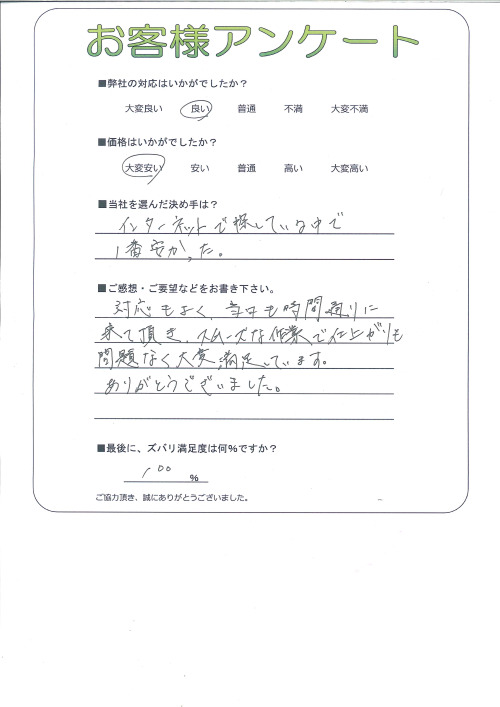 お客様アンケート
■弊社の対応はいかがでしたか？
大変良い 良い 普通 不満 大変不満
■価格はいかがでしたか？
大変安い 安い 普通 高い 大変高い
■当社を選んだ決め手は？
インターネットで探している中で
1番安かった。
■ご感想・ご要望などをお書き下さい。
対応もよく、当日も時間通りに
来て頂き、スムーズな作業で仕上がりも
問題なく大変満足しています。
ありがとうございました。
■最後に、ズバリ満足度は何%ですか？
100 %
ご協力頂き、誠にありがとうございました。